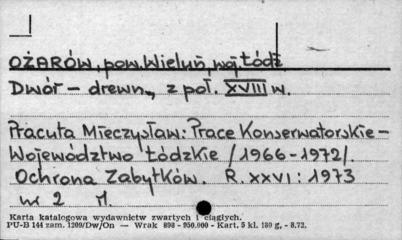 OŻARÓW, pow. Wieluń, woj. Łódź
Dwór – drewn., z poł. XVIII w.
Pracuta Mieczysław: Prace Konserwatorskie –
Województwo Łódzkie /1966-1972/.
Ochrona Zabytków. R. XXVI: 1973
nr 2
Karta katalogowa wydawnictw zwartych i ciągłych.
PU-B 144 zam. 1209/Dw/On — Wrak 898 - 950.000 - Kart. 5 kl. 180 g, - 8.72.